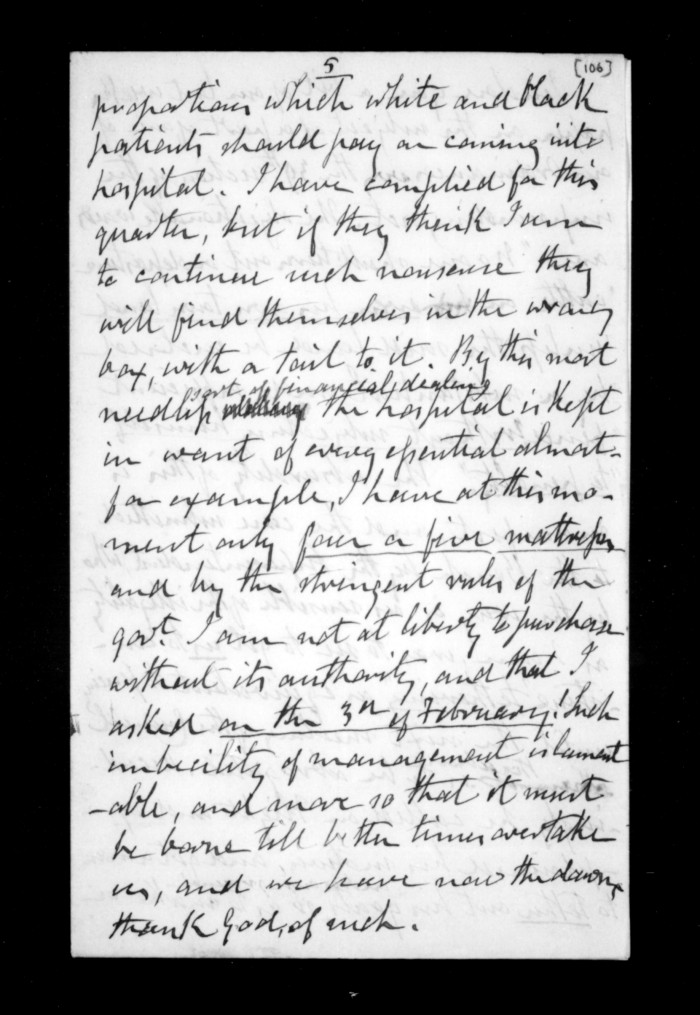 5
[106]
proportions which white and black
patients should pay on coming into
hospital. I have complied for this
quarter, but if they think I am
to continue such nonsense they
will find themselves in the wrong
box, with a tail to it. By this most
sort of financial dealing
needless the hospital is kept
in want of every essential almost.
for example, I have at this mo-
ment only four or five mattresses
and by the stringent rules of the
govt. I am not at liberty to purchase
without its authority, and that I
asked on the 3rd of February! Such
imbecility of management is lament
-able, and more so that it must
be borne till better times overtake
us, and we have now the dawn,
thank God, of such.